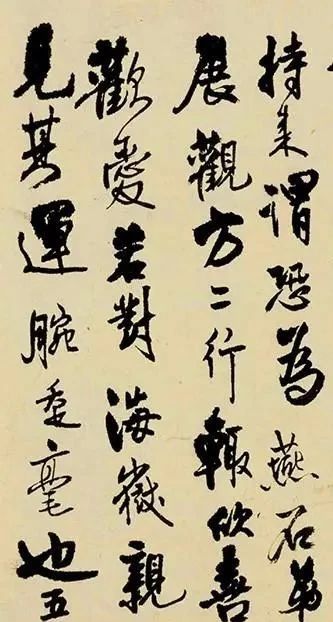 持来謂恐為燕石第
展觀方二行輙欣喜
歡愛若對海嶽親
見其運腕受毫也五